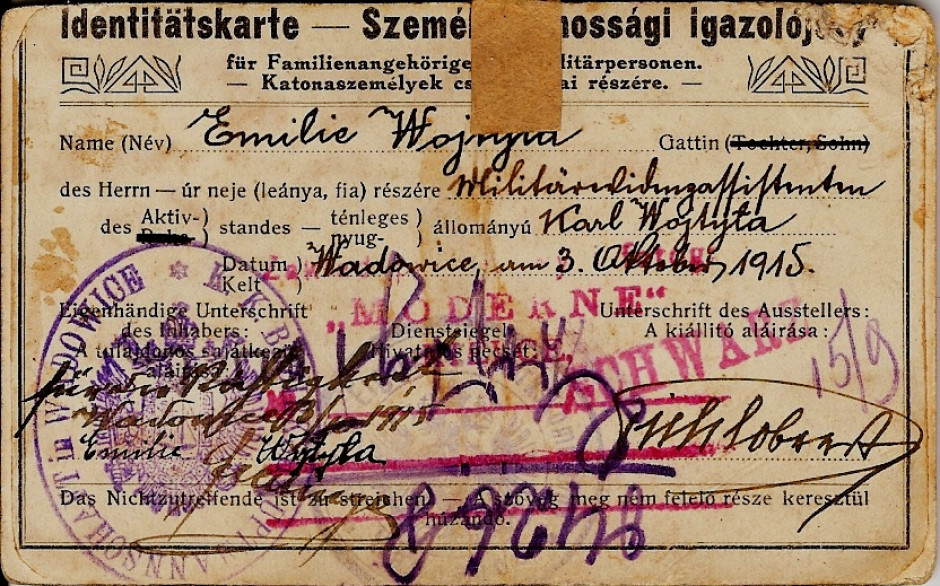 Identitätskarte — Szemé nossági igazolój
für Familienangehörige litärpersonen.
— Katonaszemélyek cs ai részére. —
Name (Név) Emilie Wojtyła Gattin (Tochter, Sohn)
des Herrn — úr neje (leánya, fia) részére Militärevidenzassistenten
des Aktiv- standes — tényleges nyug- állományú Karl Wojtyła
Datum Kelt Wadowice, am 3. Oktober 1915.
"MODERNE"
SCHWARZ
15/9
Eigenhändige Unterschrift des Inhabers:
A tulajdonos sajátkezű aláírása:
Dienstsiegel
Hivatalos pecsét:
Unterschrift des Ausstellers:
A kiállitó aláirása:
für die Richtigkeit
Wadowice 1915
Emilie Wojtyła
Das Nichtzutreffende ist zu streichen. — A szöveg meg nem felelő része keresztül
húzandó.
K. K. B PTMANNSCHAFT WADOWICE